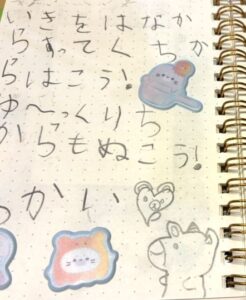 いきをはなか
らすってくちか
らはこう!
ゆ〜っくりち
からもぬこう!
かい